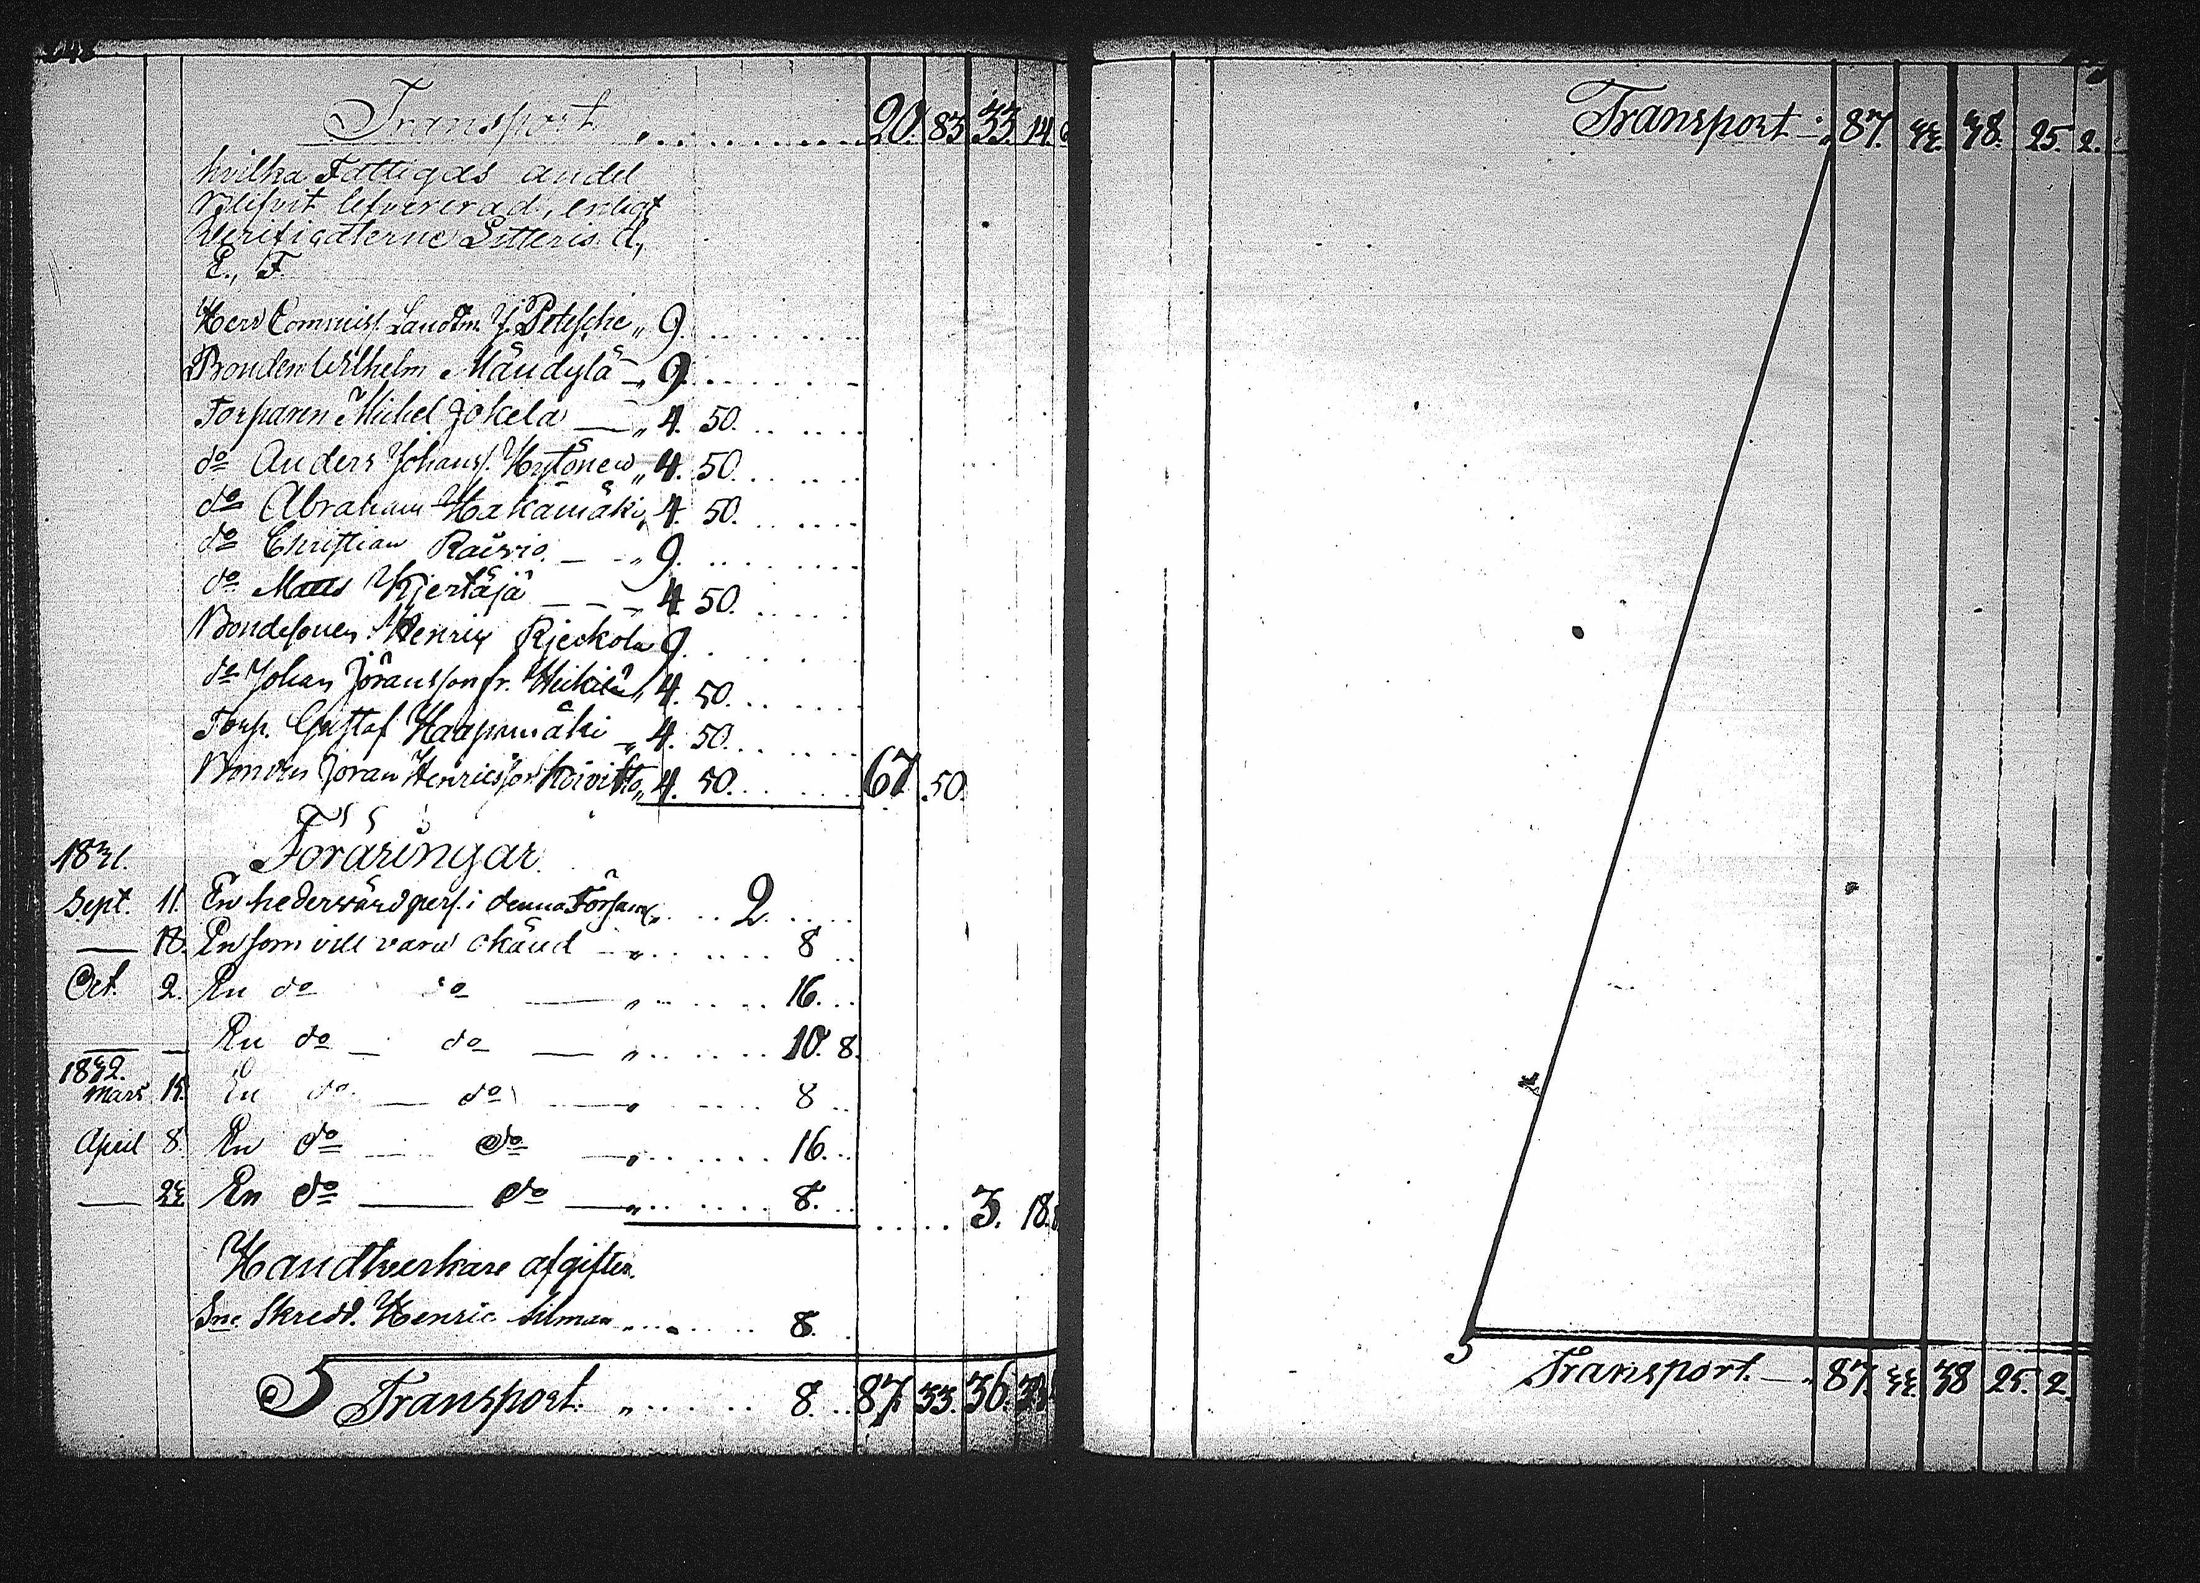 Transport „ 20. 83 33. 14.
hvilka Fattigas andel
blifvit lefvererad, enligt
Verificaterne Litteris d,
E., F.
Herr Commiss. Landtm. J. Petesche „ 9.
Bonden Wilhelm Mändylä — „ 9.
Torparen Michel Jokela — „ 4. 50.
do Anders Johans. Hytönen „ 4. 50.
do Abraham Hakamäki „ 4. 50.
do Christian Raivio — „ 9.
do Matts Kjertäjä — — — 4 50.
Bondesonen Henric Kjeckola 9.
do Johan Jöransson fr. „ 4. 50.
Torp. Gustaf Haapamäki „ 4. 50.
Bonden Jöran Henricsson Koivisto „ 4. 50. 67 50.
Föräringar.
1831.
Sept. 11. En hedersvärd pers. i denna Församl. „ 2.
— 18. En som vill vara okänd — „ 8
Oct. 2. En do do — „ 16.
— — En do — do — „ 10. 8.
1832.
Mars 15. En do — do — „ 8
April 8. En do — do — „ 16.
— 22 En do — do — „ 8. 3. 18.
Handtverkare afgifter.
Sne Skredd. Henric Silman „ 8.
Transport. „ 8. 87. 33. 36.
Transport — „ 87. 33. 38. 25. 2.
Transport. — „ 87. 33. 38 25. 2.